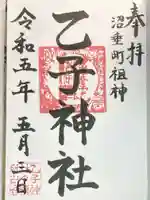 奉拝
沼垂町祖神
乙子神社
令和五年 五月三日